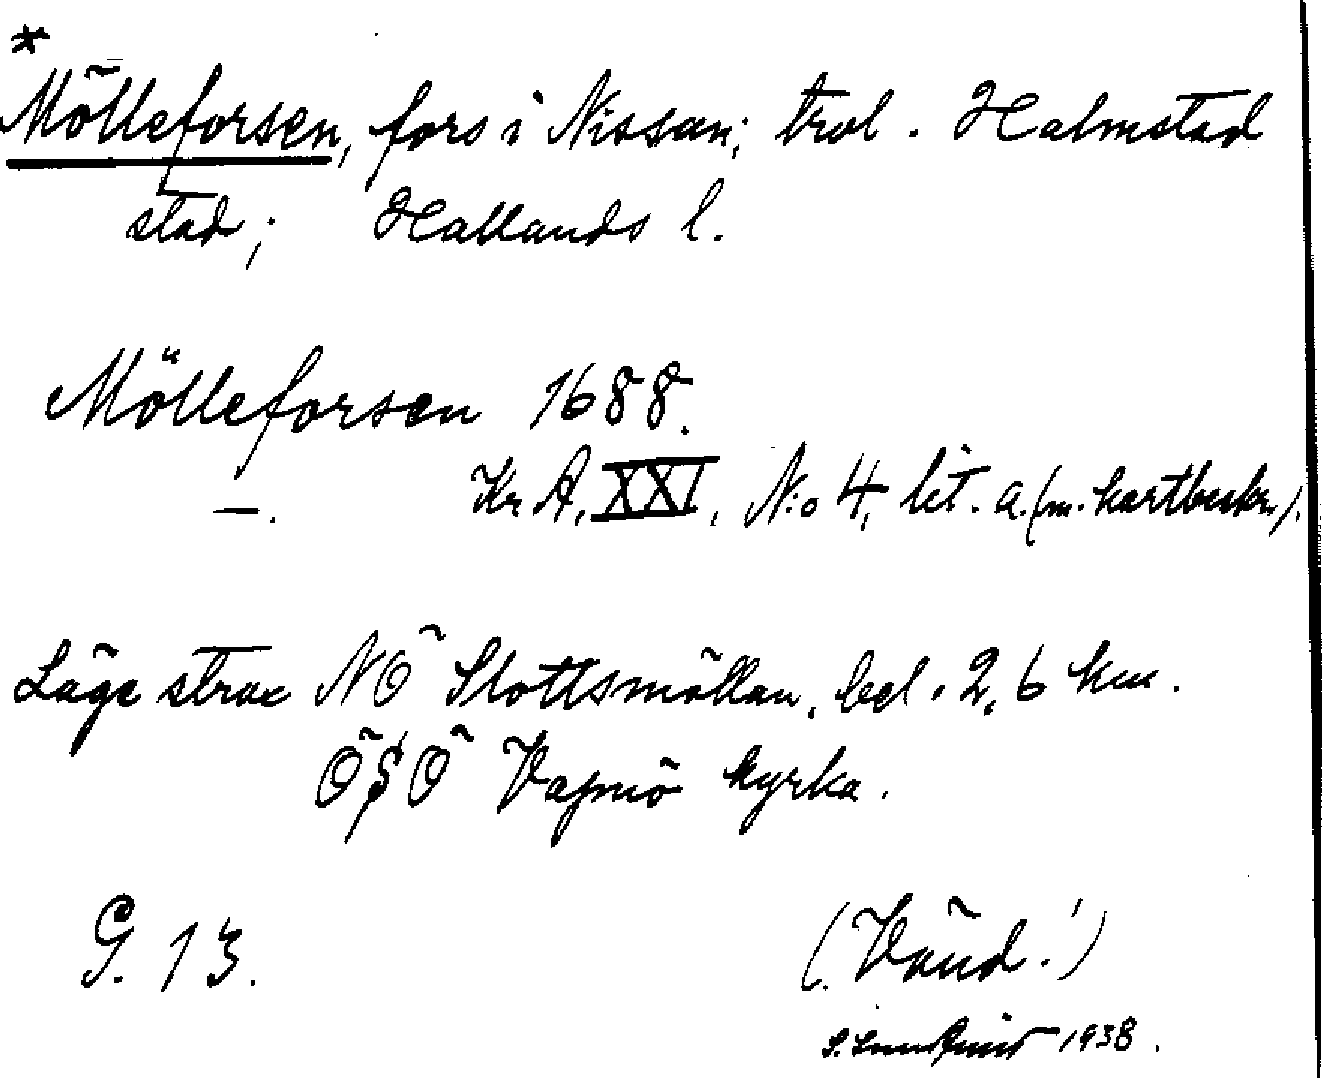 *
Mölleforsen, fors i Nissan; trol. Halmstad
stad; Hallands l.
Mölleforsen 1688.
—. Kr A, XXI, N:o 4, lit. a. (m. kartbeskr.).
Läge strax NÖ Slottsmöllan, bel. 2,6 km.
ÖSÖ Vapnö kyrka.
G. 13. (Vänd!)
1938.